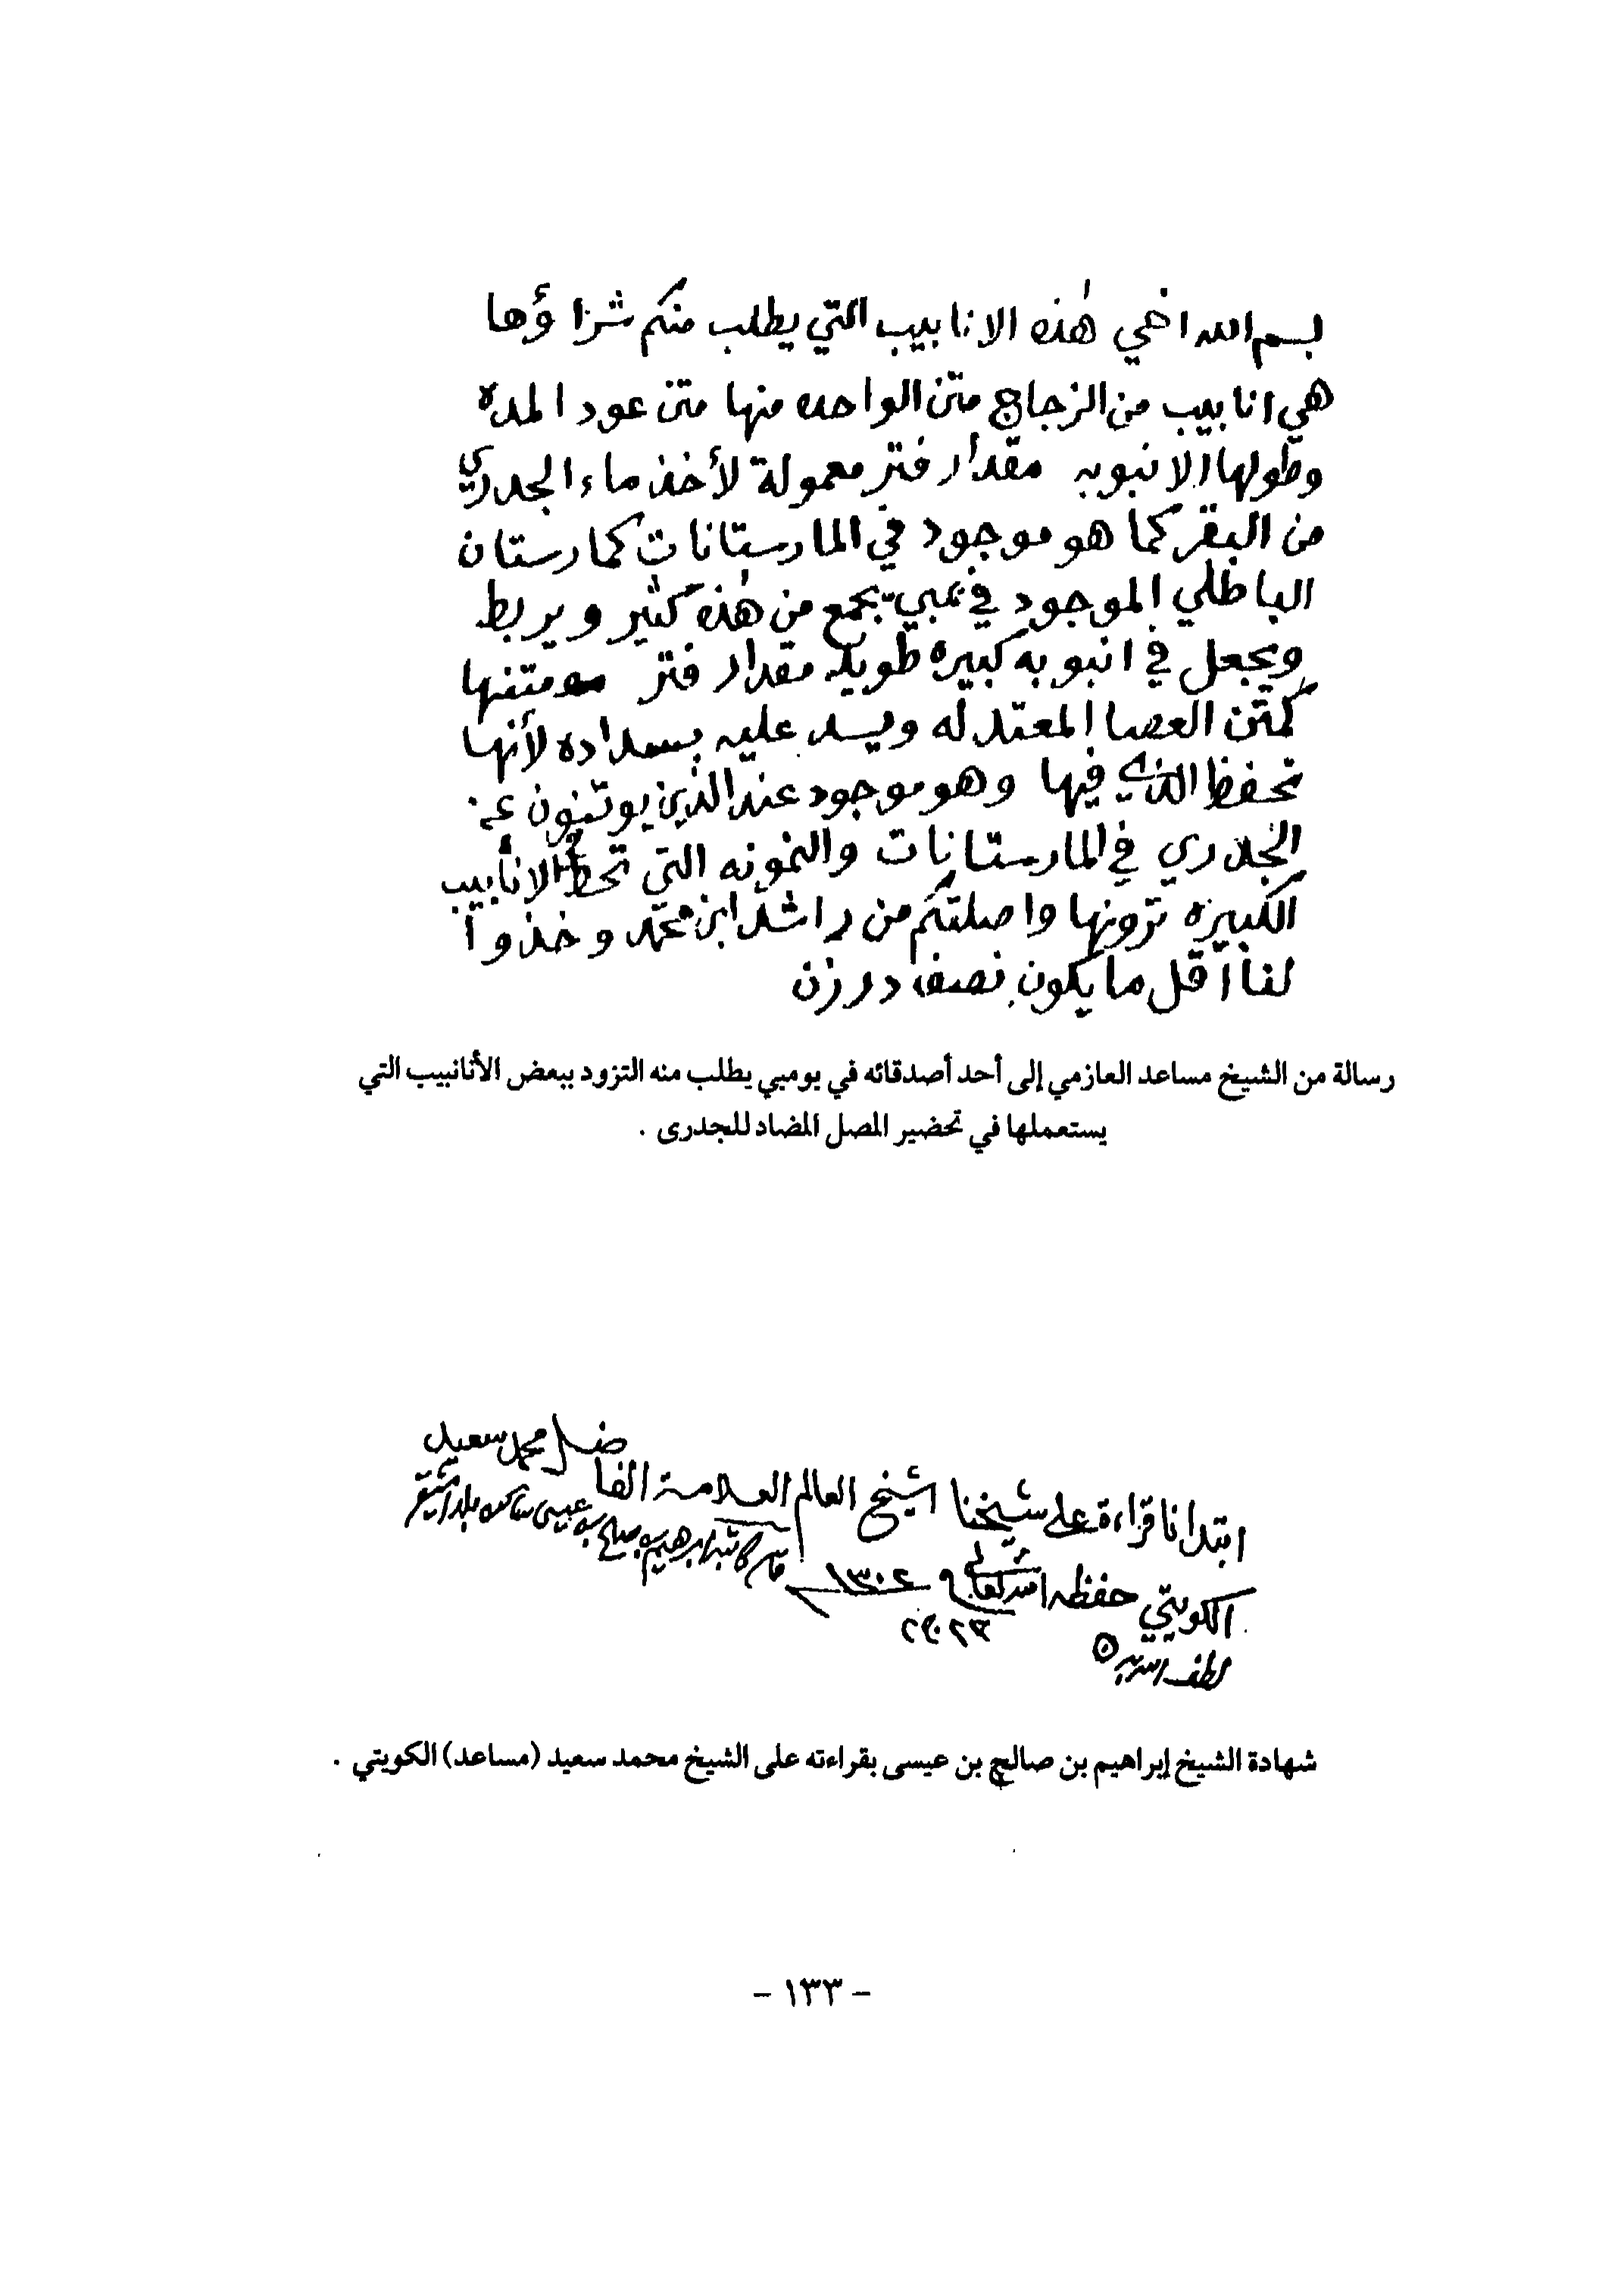 بسم الله اخي هٰذه الانابيب التي يطلب منكم شراؤها
هي انابيب من الزجاج متن الواحده منها متن عود المده
وطولها الانبوبه مقدار فتر معمولة لأخذ ماء الجدري
من البقر كما هو موجود في المارستانات كمارستان
الباطلي الموجود في بمبي يجمع من هٰذه كثير ويربط
ويجعل في انبوبه كبيره طويله مقدار فتر ومتنها
كمتن العصا المعتدله ويسد عليه بسداده لأنها
تحفظ الذي فيها وهو موجود عند الذين يوتنون عن
الجدري في المارستانات والنمونه التي تحط الانابيب
الكبيره ترونها واصلتكم من راشد ابن محمد وخذوا
لنا اقل ما يكون نصف درزن
رسالة من الشيخ مساعد العازمي إلى أحد أصدقائه في بومبي يطلب منه التزود ببعض الأنانبيب التي
يستعملها في تحضير المصل المضاد للجدرى .
ابتدانا قراءة على شيخنا الشيخ العالم العلامة الفاضل محمد سعيد
الكويتي حفظه الله تعالى ١٣٠٤ قاله كاتبه ابرهيم بن صالح بن عيسى
لطف الله به
شهادة الشيخ إبراهيم بن صالح بن عيسى بقراءته على الشيخ محمد سعيد (مساعد) الكويتي .
- ١٣٣ -